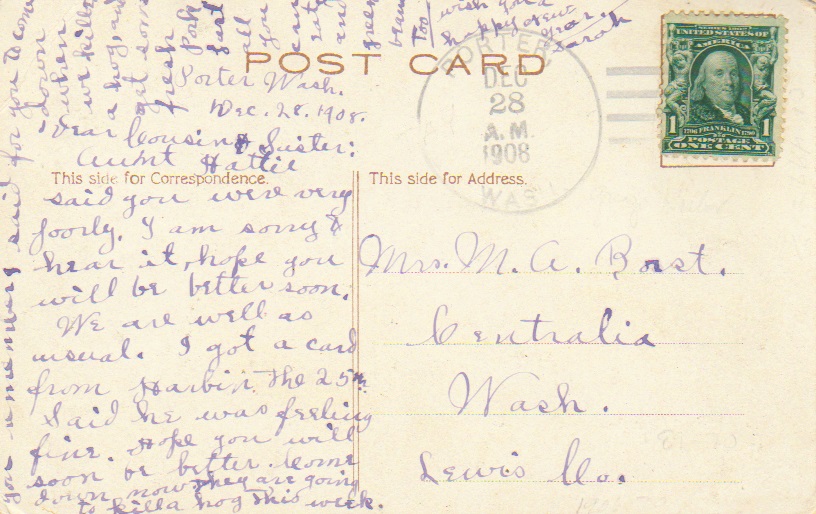 POST CARD
Porter Wash.
Dec. 28, 1908.
Dear Cousin & Sister:
Aunt Hattie
This side for Correspondence.
said you were very
poorly. I am sorry to
hear it, hope you
will be better soon.
We are well as
usual. I got a card
from Harbin the 25th.
Said he was feeling
fine. Hope you will
soon be better. Come
down now they are going
to kill a hog this week.
said for you to come
down
when
we kill
a hog, and
get some
fresh
Pork
all
you
and
green
Too
wish you a
happy New
year
Sarah
PORTER,
DEC
28
A.M.
1908
WASH
SERIES 1902
UNITED STATES OF
AMERICA
1706 FRANKLIN 1790
1 1
POSTAGE
ONE CENT
This side for Address.
Mrs. M. A. Borst.
Centralia
Wash.
Lewis Co.